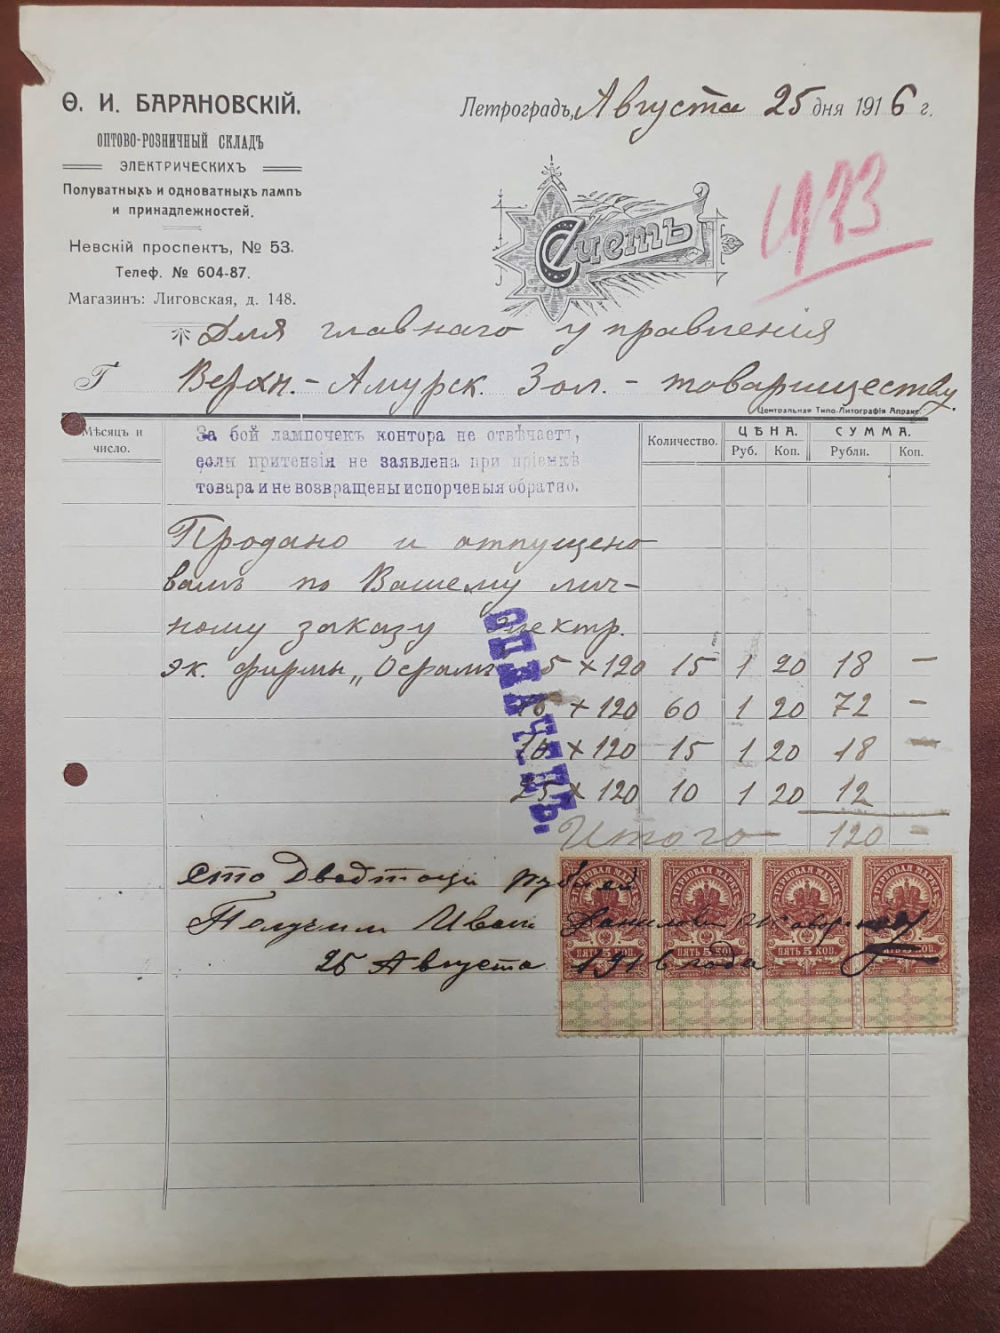 Ѳ. И. БАРАНОВСКІЙ.
ОПТОВО-РОЗНИЧНЫЙ СКЛАДЪ
ЭЛЕКТРИЧЕСКИХЪ
Полуватныхъ и одноватныхъ лампъ
и принадлежностей.
Невскій проспектъ, № 53.
Телеф. № 604-87.
Магазинъ: Лиговская, д. 148.
Петроградъ, Августа 25 дня 1916 г.
Счетъ
Для главнаго управленія
Г Верхн.-Амурск. Зол.-товариществу.
Центральная Типо-Литографія Апракс.
Мѣсяцъ и число.
Количество.
ЦѢНА.
СУММА.
Руб. Коп. Рубли. Коп.
За бой лампочекъ контора не отвѣчаетъ,
если притензія не заявлена при пріемкѣ
товара и не возвращены испорченыя обратно.
Продано и отпущено
вамъ по Вашему лич-
ному заказу электр.
эк. фирмы „Осрамъ 5 × 120 15 1 20 18 —
16 × 120 60 1 20 72 —
16 × 120 15 1 20 18 —
25 × 120 10 1 20 12
Итого 120 —
ОПЛАЧЕНЪ.
Сто Двадцать рублей
Получил Иван
25 Августа 1916 года
ГЕРБОВАЯ МАРКА ГЕРБОВАЯ МАРКА ГЕРБОВАЯ МАРКА ГЕРБОВАЯ МАРКА
ПЯТЬ 5 КОП. ПЯТЬ 5 КОП. ПЯТЬ 5 КОП. ПЯТЬ 5 КОП.